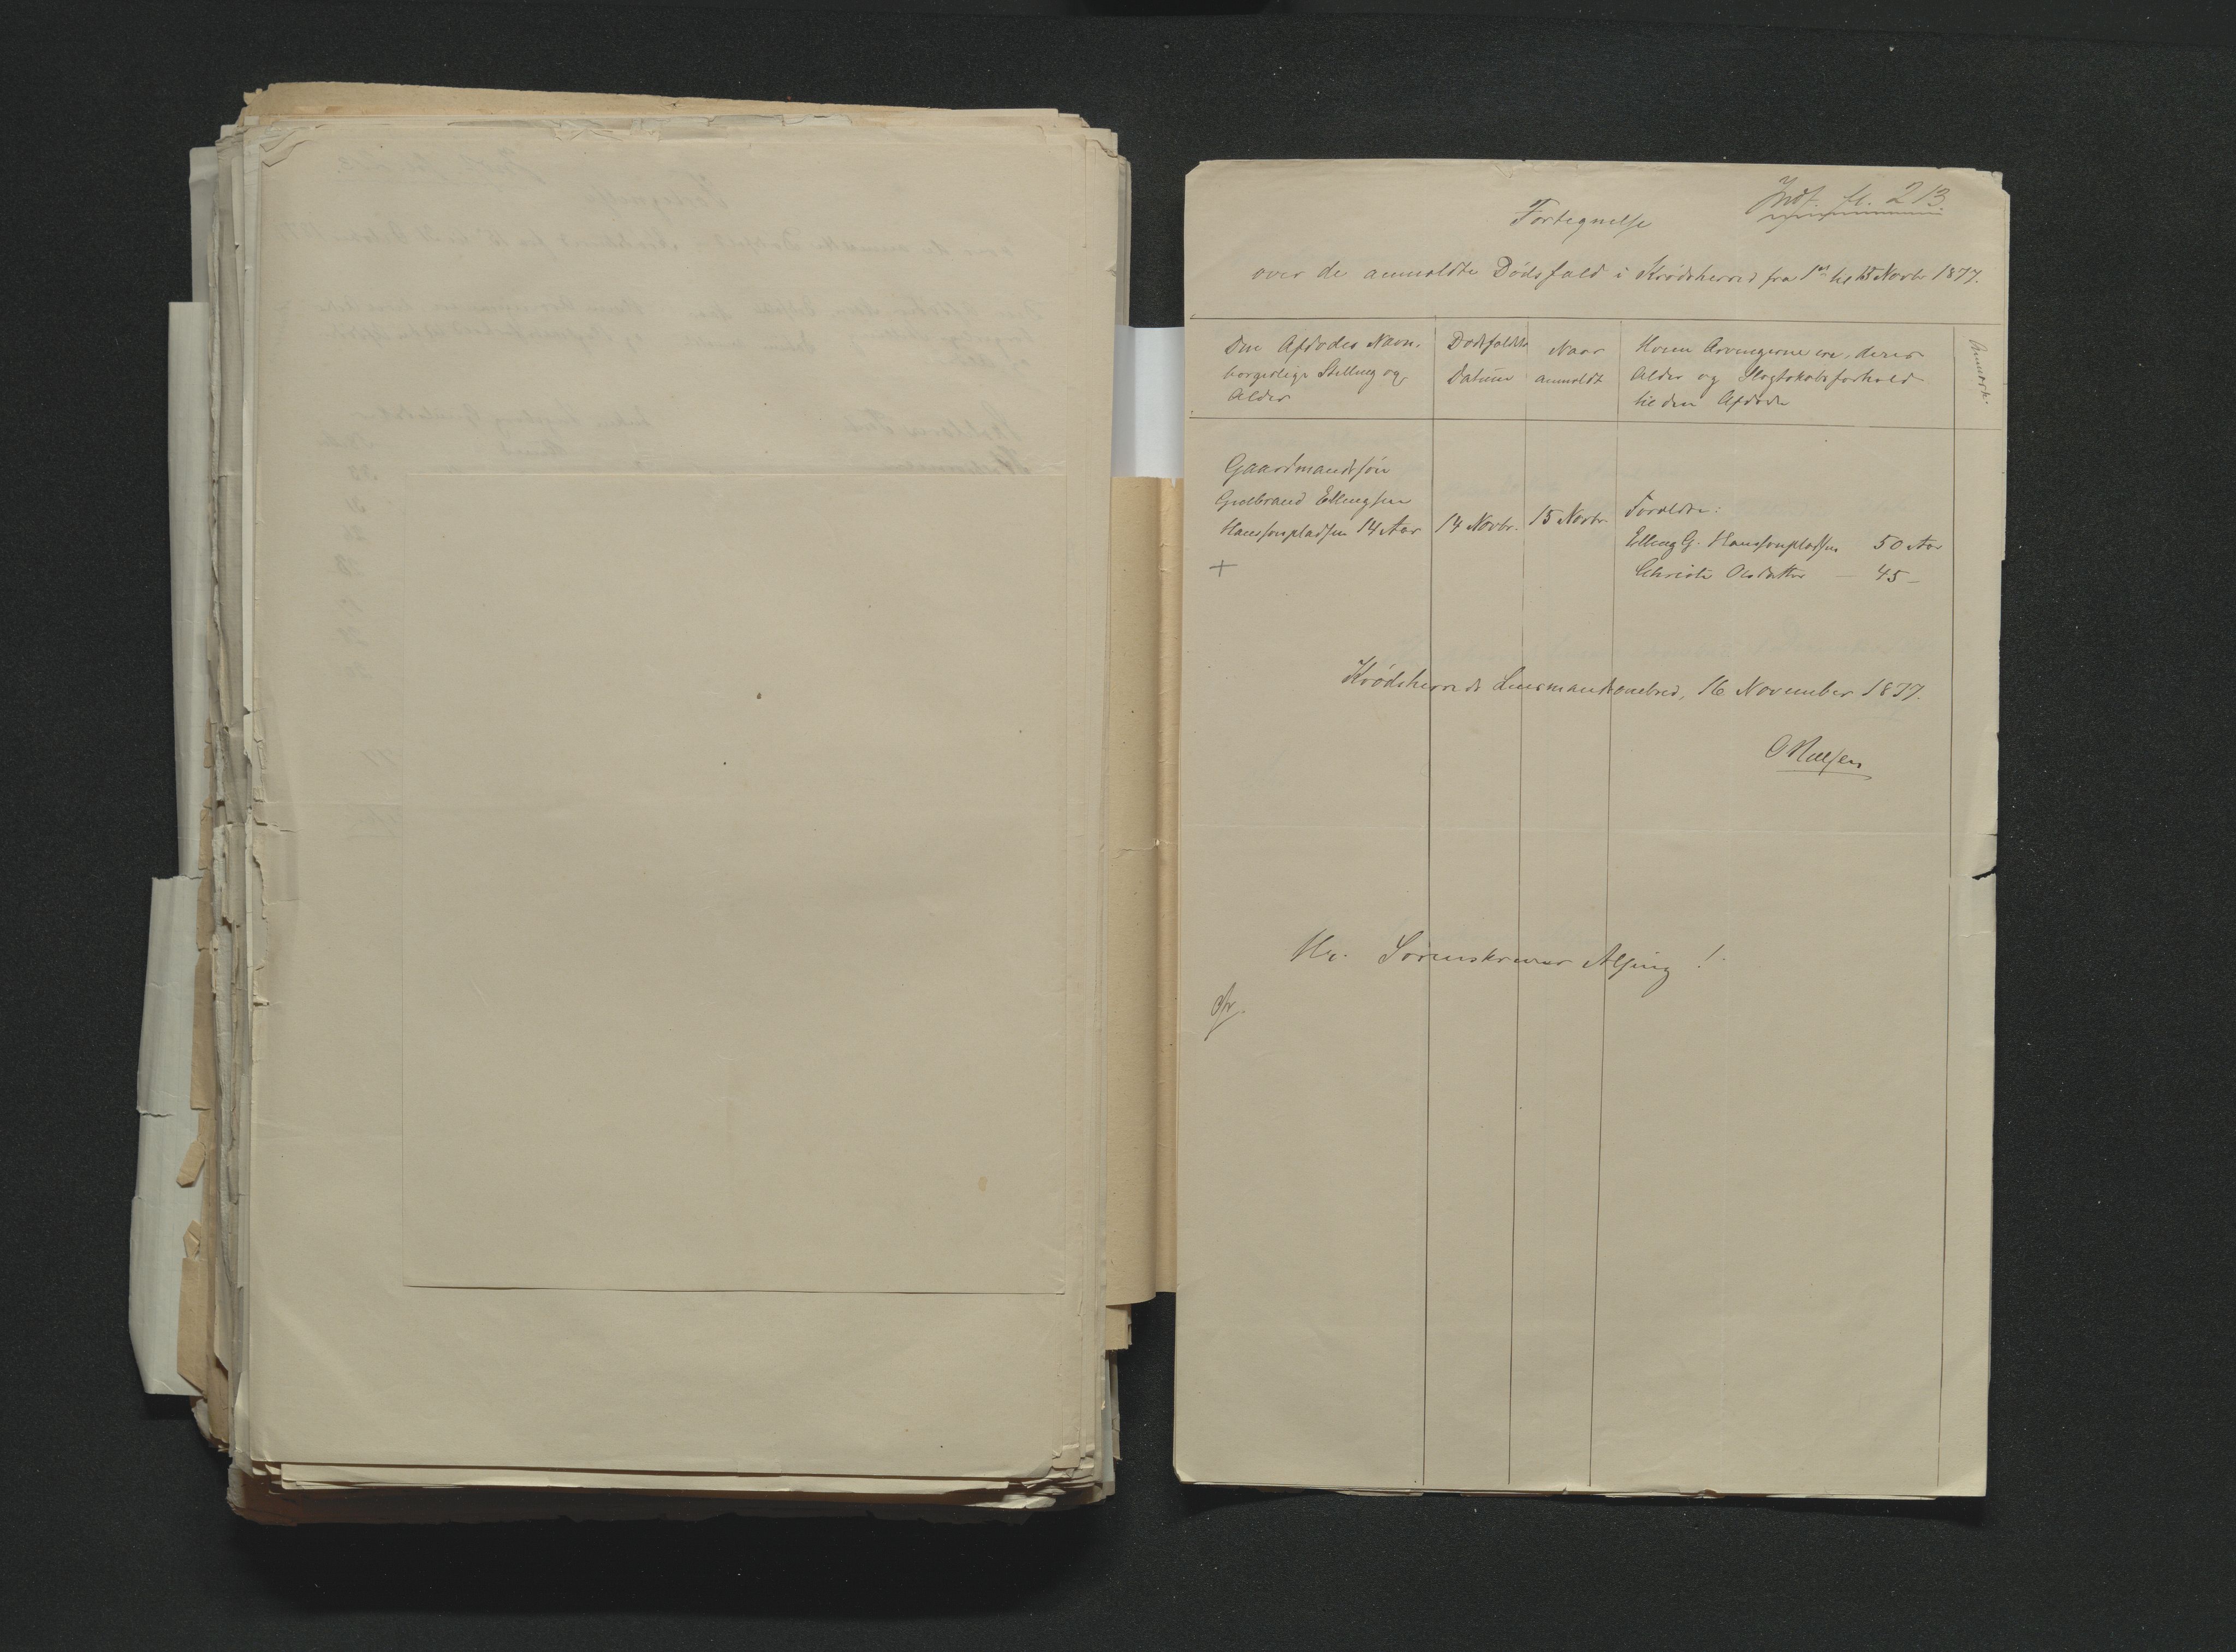 Indf. fl. 213.
Fortegnelse
over de anmeldte Dödsfald i Krödsherred fra 1ste til 15 Novbr 1877.
Den Afdödes Navn,
borgerlige Stilling og
Alder
Dödsfaldets
Datum
Naar
anmeldt
Hvem Arvingerne ere, deres
Alder og Slægtskabsforhold
til den Afdöde
Anmærk.
Gaardmandssön
Gulbrand Ellingsen
Hanssonpladsen 14 Aar
14 Novbr.
15 Novbr.
Foreldre:
Elling G. Hanssonpladsen 50 Aar
Christi Olsdatter — 45 —
+
Krödsherreds Lensmandsombud, 16 November 1877.
O Nilsen
Hr. Sorenskriver Alsing!